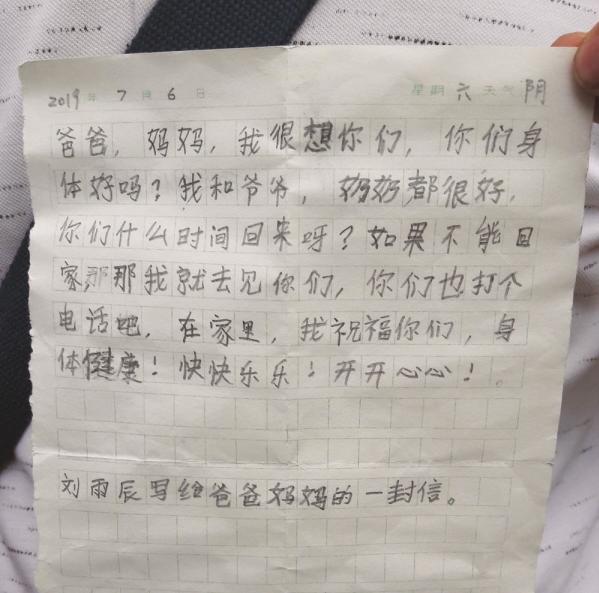 2019年 7月 6日 星期六 天气阴
爸爸，妈妈，我很想你们，你们身
体好吗？我和爷爷，奶奶都很好，
你们什么时间回来呀？如果不能回
家那那我就去见你们，你们也打个
电话吧，在家里，我祝福你们，身
体健康！快快乐乐！开开心心！。
刘雨辰写给爸爸妈妈的一封信。